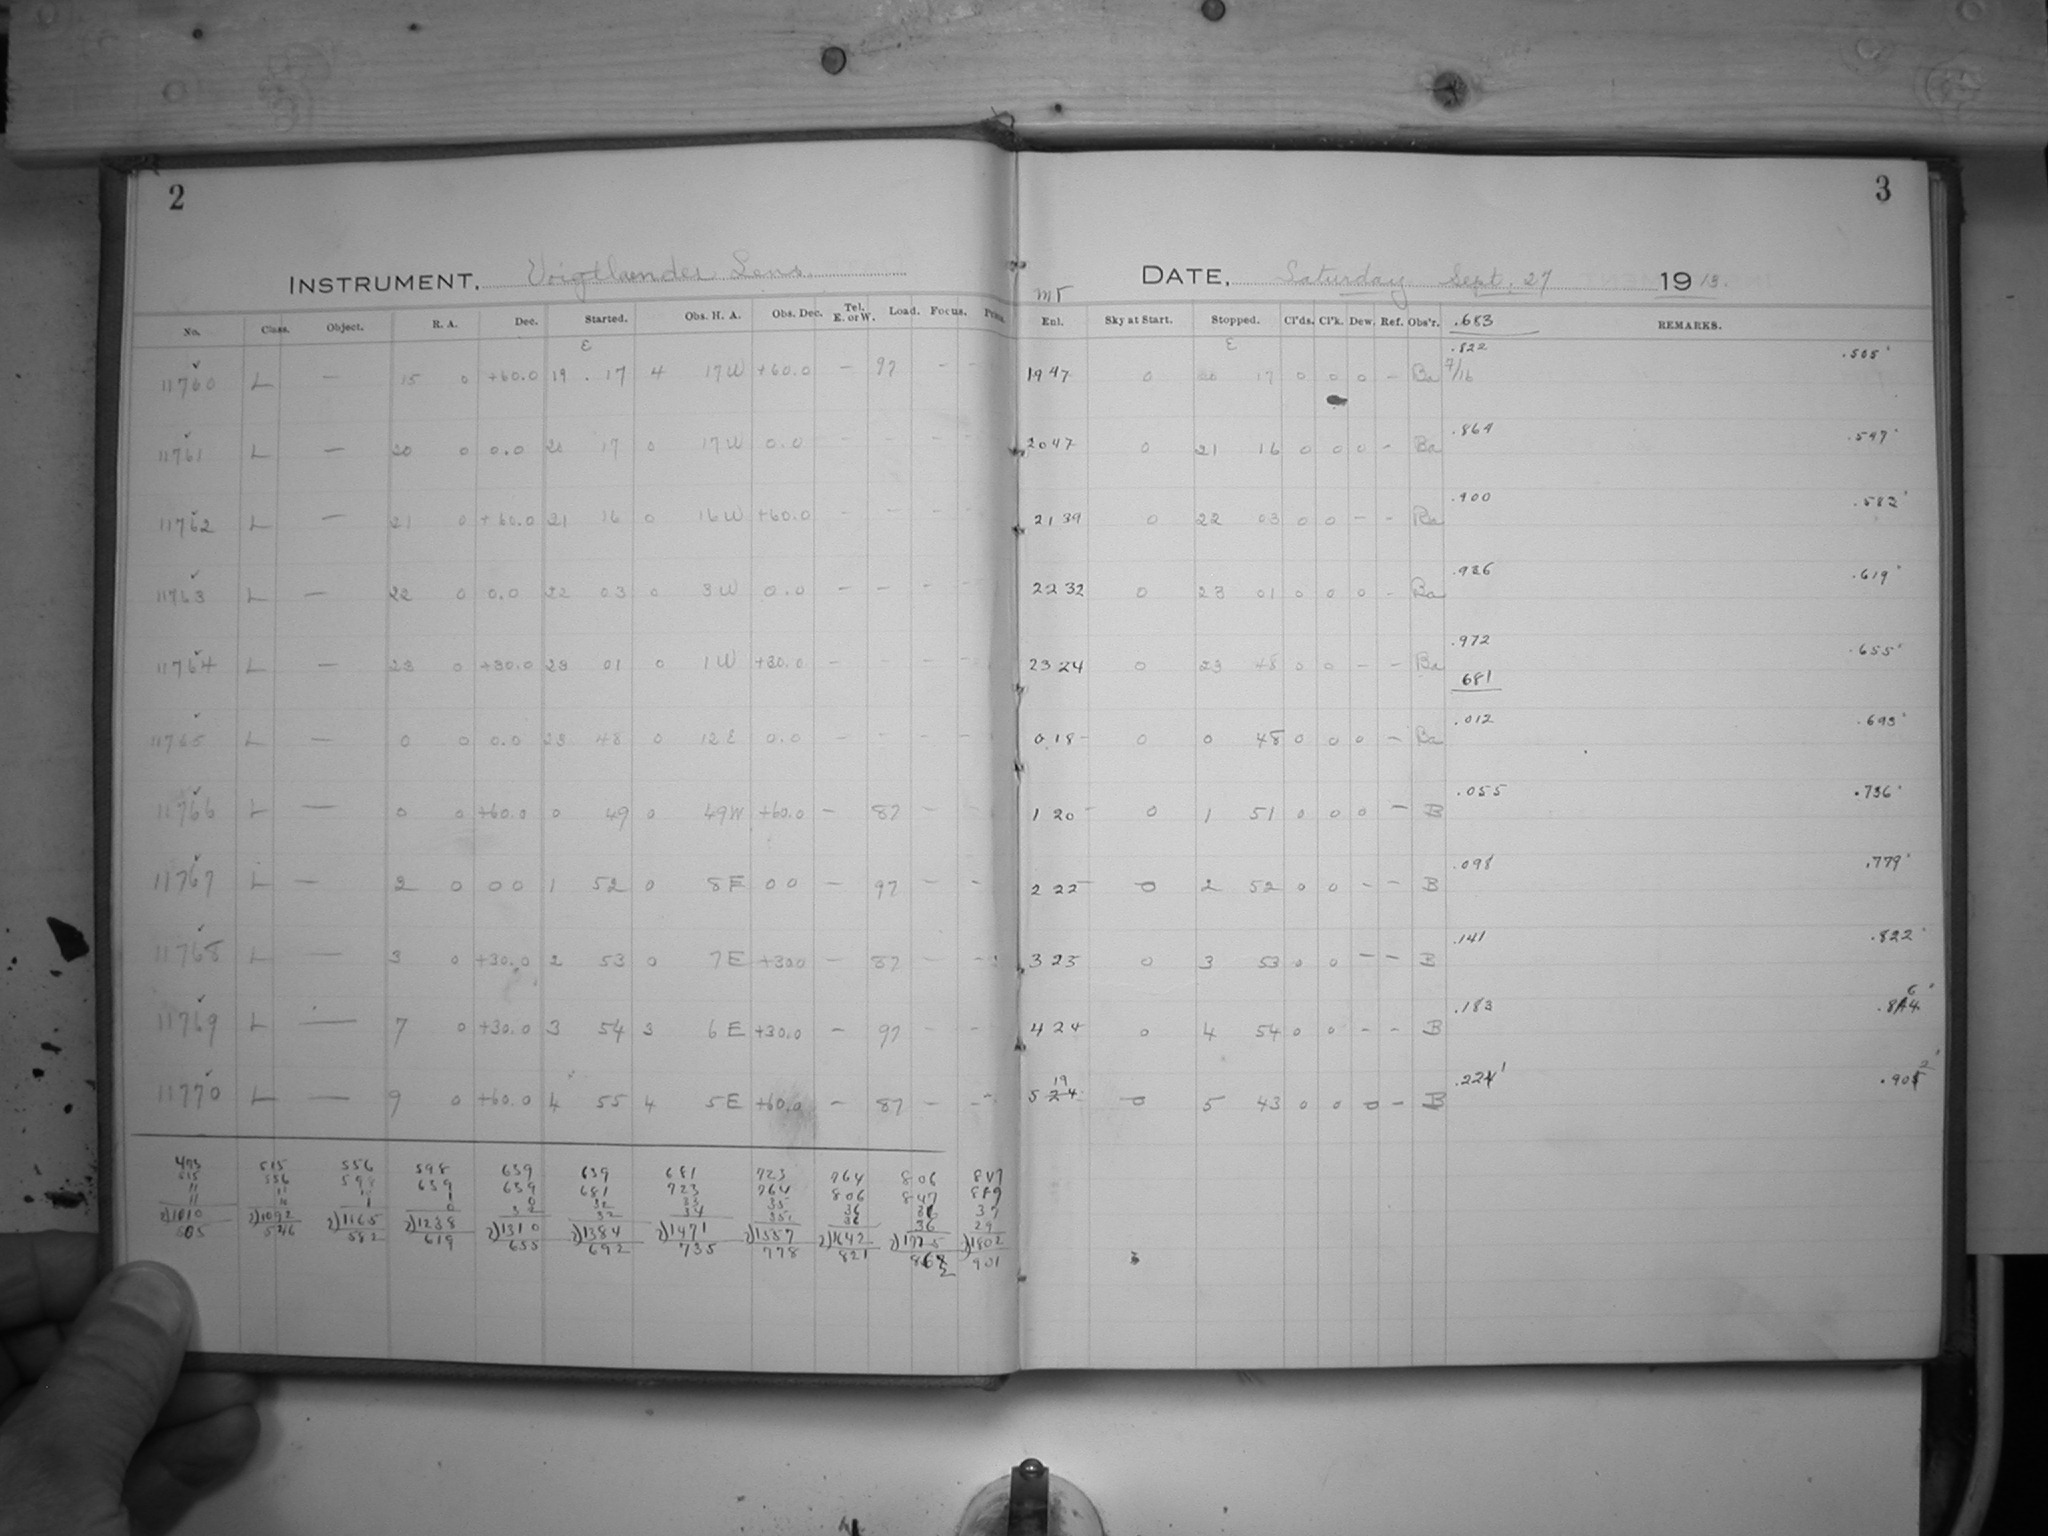 2
INSTRUMENT, Voigtlaender Lens
No. Class. Object. R. A. Dec. Started. Obs. H. A. Obs. Dec. Tel. E. or W. Load. Focus.
E
11760 L — 15 0 +60.0 19 . 17 4 17W +60.0 — 97 - -
11761 L — 20 0 0.0 20 17 0 17W 0.0 - - - -
11762 L — 21 0 +60.0 21 16 0 16W +60.0 - - - -
11763 L — 22 0 0.0 22 03 0 3W 0.0 - - - -
11764 L — 23 0 +30.0 23 01 0 1W +30.0 - - - -
11765 L — 0 0 0.0 23 48 0 12E 0.0 - - - -
11766 L — 0 0 +60.0 0 49 0 49W +60.0 — 87 - -
11767 L — 2 0 00 1 52 0 8E 00 — 97 - -
11768 L — 3 0 +30.0 2 53 0 7E +300 — 87 - -
11769 L — 7 0 +30.0 3 54 3 6E +30.0 — 97 - -
11770 L — 9 0 +60.0 4 55 4 5E +60.0 — 87 - -
493 515 556 598 639 639 681 723 764 806 847
515 556 598 639 639 681 723 764 806 847 889
11 11 11 1 0 32 33 35 36 36 37
11 11 1 0 32 32 34 35 36 36 29
2)1010 2)1092 2)1165 2)1238 2)1310 2)1384 2)1471 2)1557 2)1642 2)1725 2)1802
505 546 582 619 655 692 735 778 821 862 901
3
DATE, Saturday Sept. 27 1913.
MT
Enl. Sky at Start. Stopped. Cl'ds. Cl'k. Dew. Ref. Obs'r. .683 REMARKS.
E .822 .505'
19 47 0 20 17 0 0 0 - Ba 7/16
.864 .547'
20 47 0 21 16 0 0 0 - Ba
.900 .583'
21 39 0 22 03 0 0 - - Ba
.936 .619'
22 32 0 23 01 0 0 0 - Ba
.972 .655'
23 24 0 23 48 0 0 - - Ba
681
.012 .693'
0 18 0 0 48 0 0 0 - Ba
.055 .736'
1 20 0 1 51 0 0 0 - B
.098 .779'
2 22 0 2 52 0 0 - - B
.141 .822'
3 23 0 3 53 0 0 - - B
.183 .864'
4 24 0 4 54 0 0 - - B
.221' .902'
5 19 24 0 5 43 0 0 0 - B